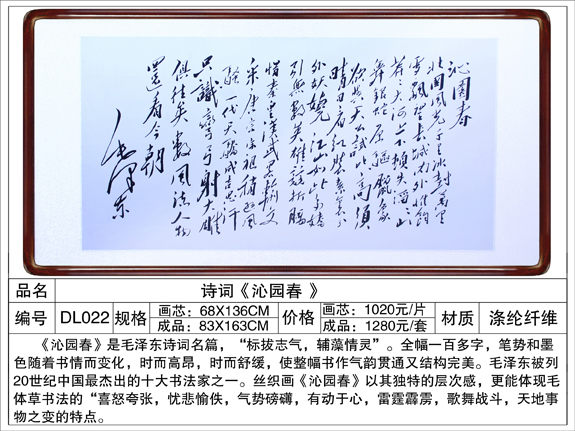 沁園春
北國風光千里冰封萬里
雪飄望長城内外惟餘
莽莽大河上下頓失滔滔山
舞銀蛇原驅臘象
欲與天公試比高須
晴日看紅裝素裹分
外妖嬈江山如此多嬌
引無數英雄競折腰
惜秦皇漢武略輸文
采唐宗宋祖稍遜風
騷一代天驕成吉思汗
只識彎弓射大雕
俱往矣數風流人物
還看今朝
毛澤东
品名 诗词《沁园春 》
编号 DL022 规格 画芯：68X136CM 价格 画芯：1020元/片 材质 涤纶纤维
成品：83X163CM 成品：1280元/套
《沁园春》是毛泽东诗词名篇，“标拔志气，辅藻情灵”。全幅一百多字，笔势和墨
色随着书情而变化，时而高昂，时而舒缓，使整幅书作气韵贯通又结构完美。毛泽东被列
20世纪中国最杰出的十大书法家之一。丝织画《沁园春》以其独特的层次感，更能体现毛
体草书法的“喜怒夸张，忧悲愉佚，气势磅礴，有动于心，雷霆霹雳，歌舞战斗，天地事
物之变的特点。